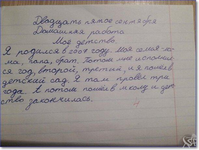 Двадцать пятое сентября
Домашняя работа
Моё детство.
Я родился в 2001 году. Моя семья-ма-
ма, папа, брат. Потом мне исполнил
ся год, второй, третий, и я пошёл в
детский сад. Я там провёл три
года. А потом пошёл в школу и дет
ство закончилось.